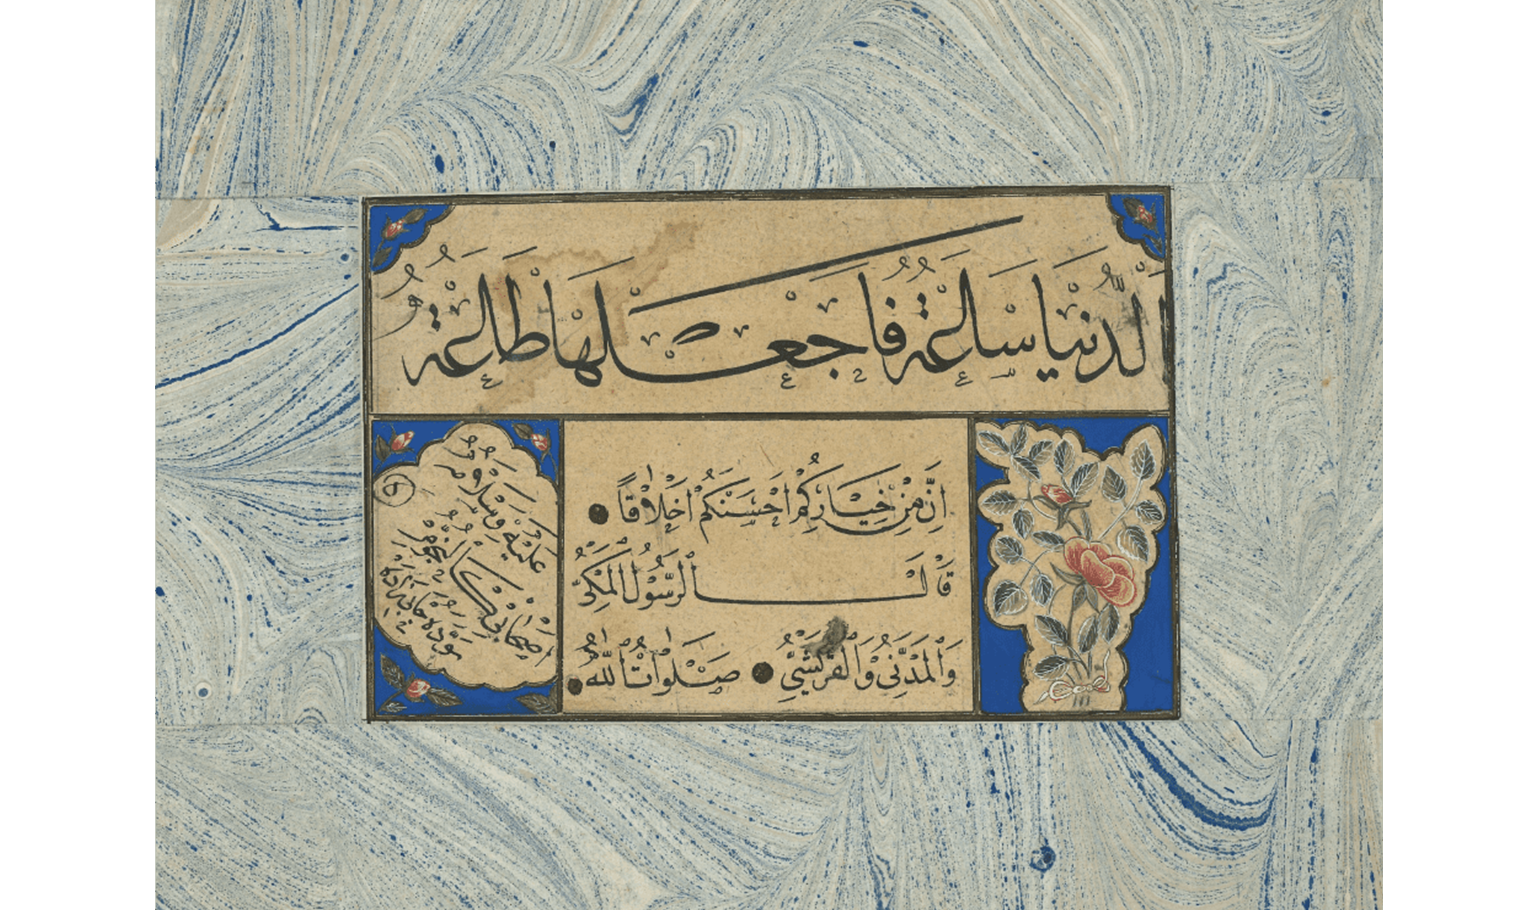 اَلدُّنْيَا سَاعَةٌ فَاجْعَلْهَا طَاعَةً
اِنَّ مِنْ خِيَارِكُمْ اَحْسَنَكُمْ اَخْلَاقًا
قَالَ الرَّسُولُ الْمَكِّيُّ
وَالْمَدَنِيُّ وَالْقُرَشِيُّ صَلَوَاتُ اللّٰهِ
عَلَيْهِ وَسَلَامُهُ
اَصْحَابِي كَالنُّجُومِ